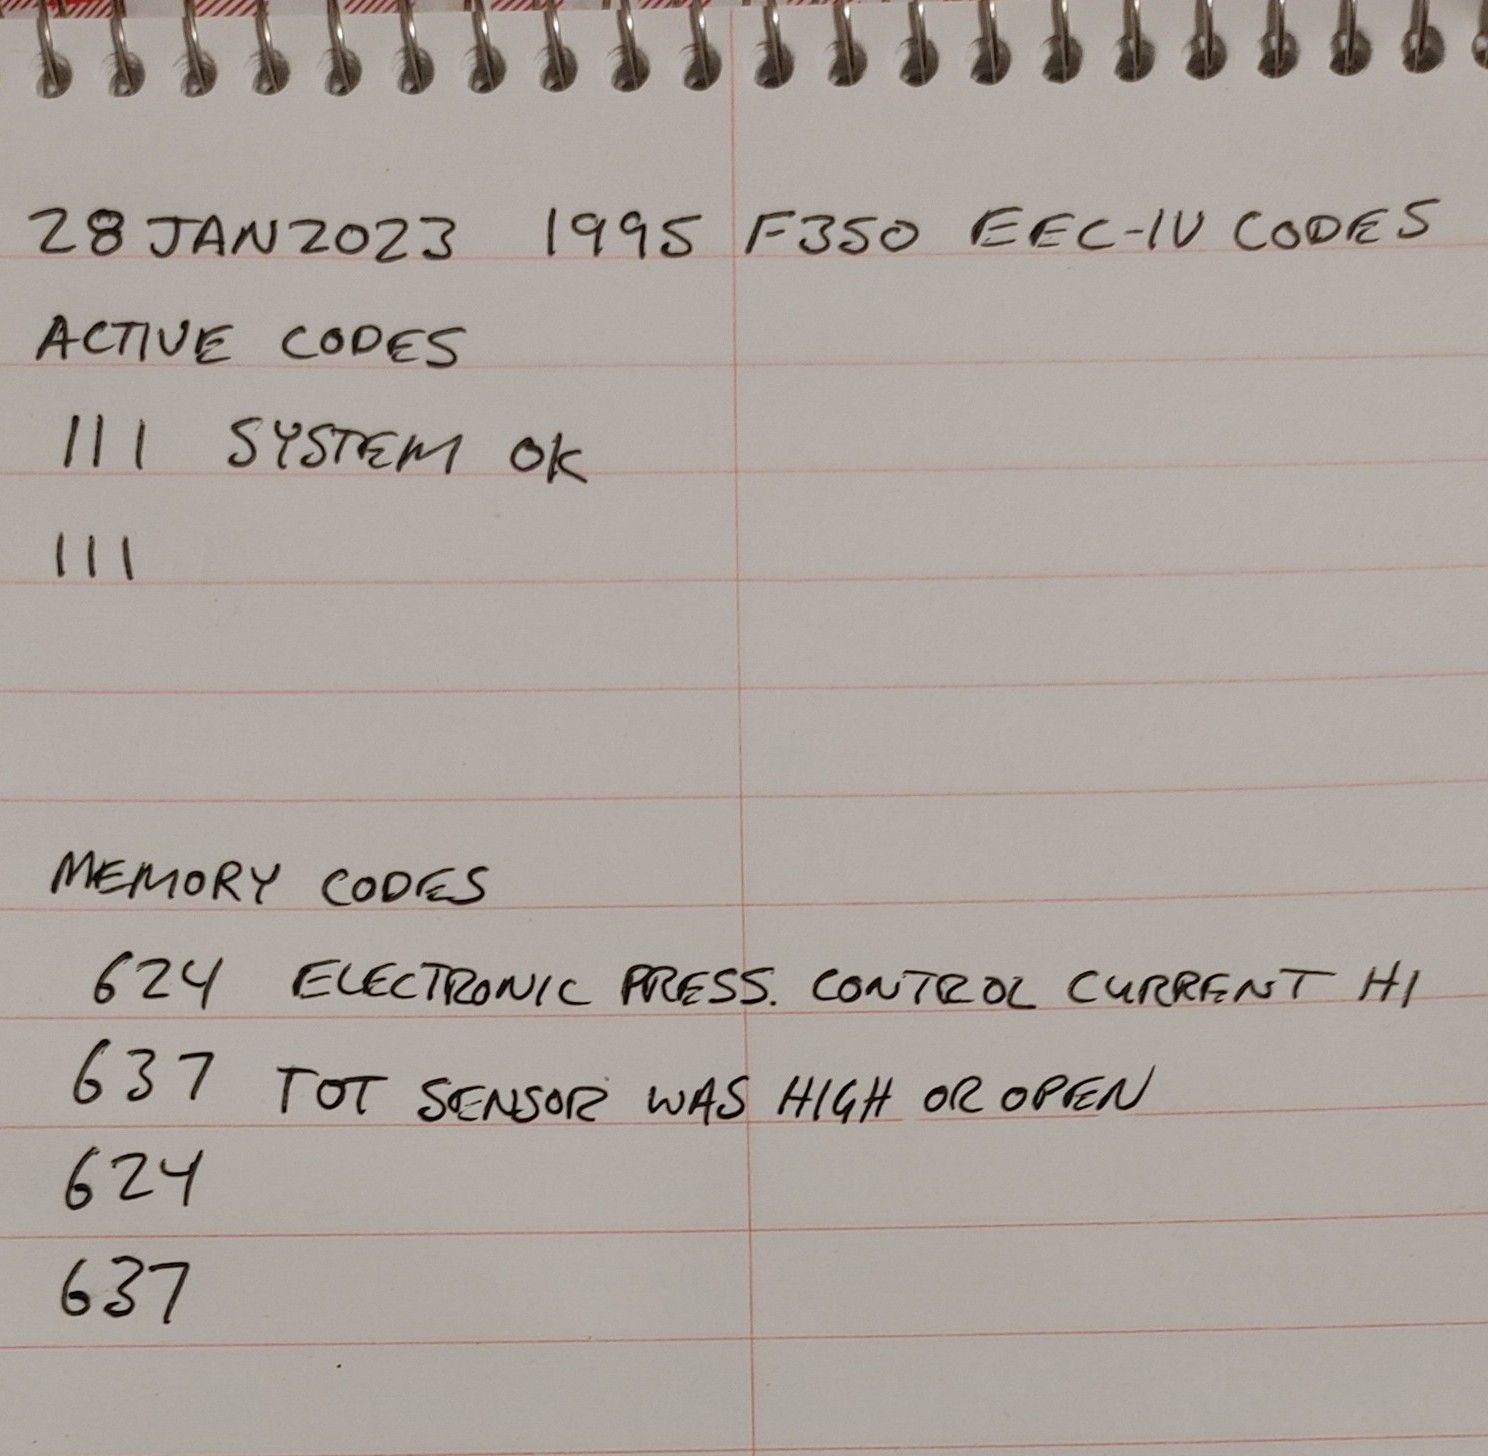 28 JAN 2023 1995 F350 EEC-IV CODES
ACTIVE CODES
111 SYSTEM OK
111
MEMORY CODES
624 ELECTRONIC PRESS. CONTROL CURRENT HI
637 TOT SENSOR WAS HIGH OR OPEN
624
637